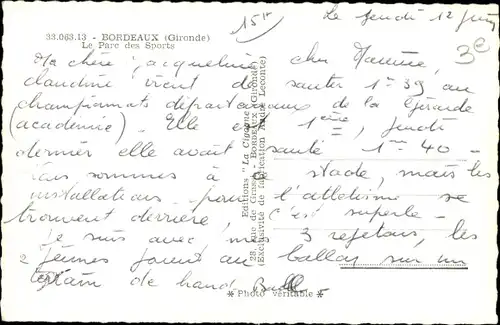 15F
Le Jeudi 12 Juin
3e
33.063.13 - BORDEAUX (Gironde)
Le Parc des Sports
Ma chère Jacqueline, cher Maurice,
Claudine vient de sauter 1m39 au
championnats départementaux de la Gironde
(académie). Elle est 1ère, jeudi
dernier elle avait sauté 1m40 -
nous sommes à ce stade, mais les
installations pour l'athlétisme se
trouvent derrière, c'est superbe -
je suis avec mes 3 rejetons, les
2 jeunes jouent au ballon sur un
terrain de hand Ball -
Editions "La Cigogne"
28, rue de Grassi - BORDEAUX (Gironde)
(Exclusivité de fabrication André Leconte)
* Photo véritable *